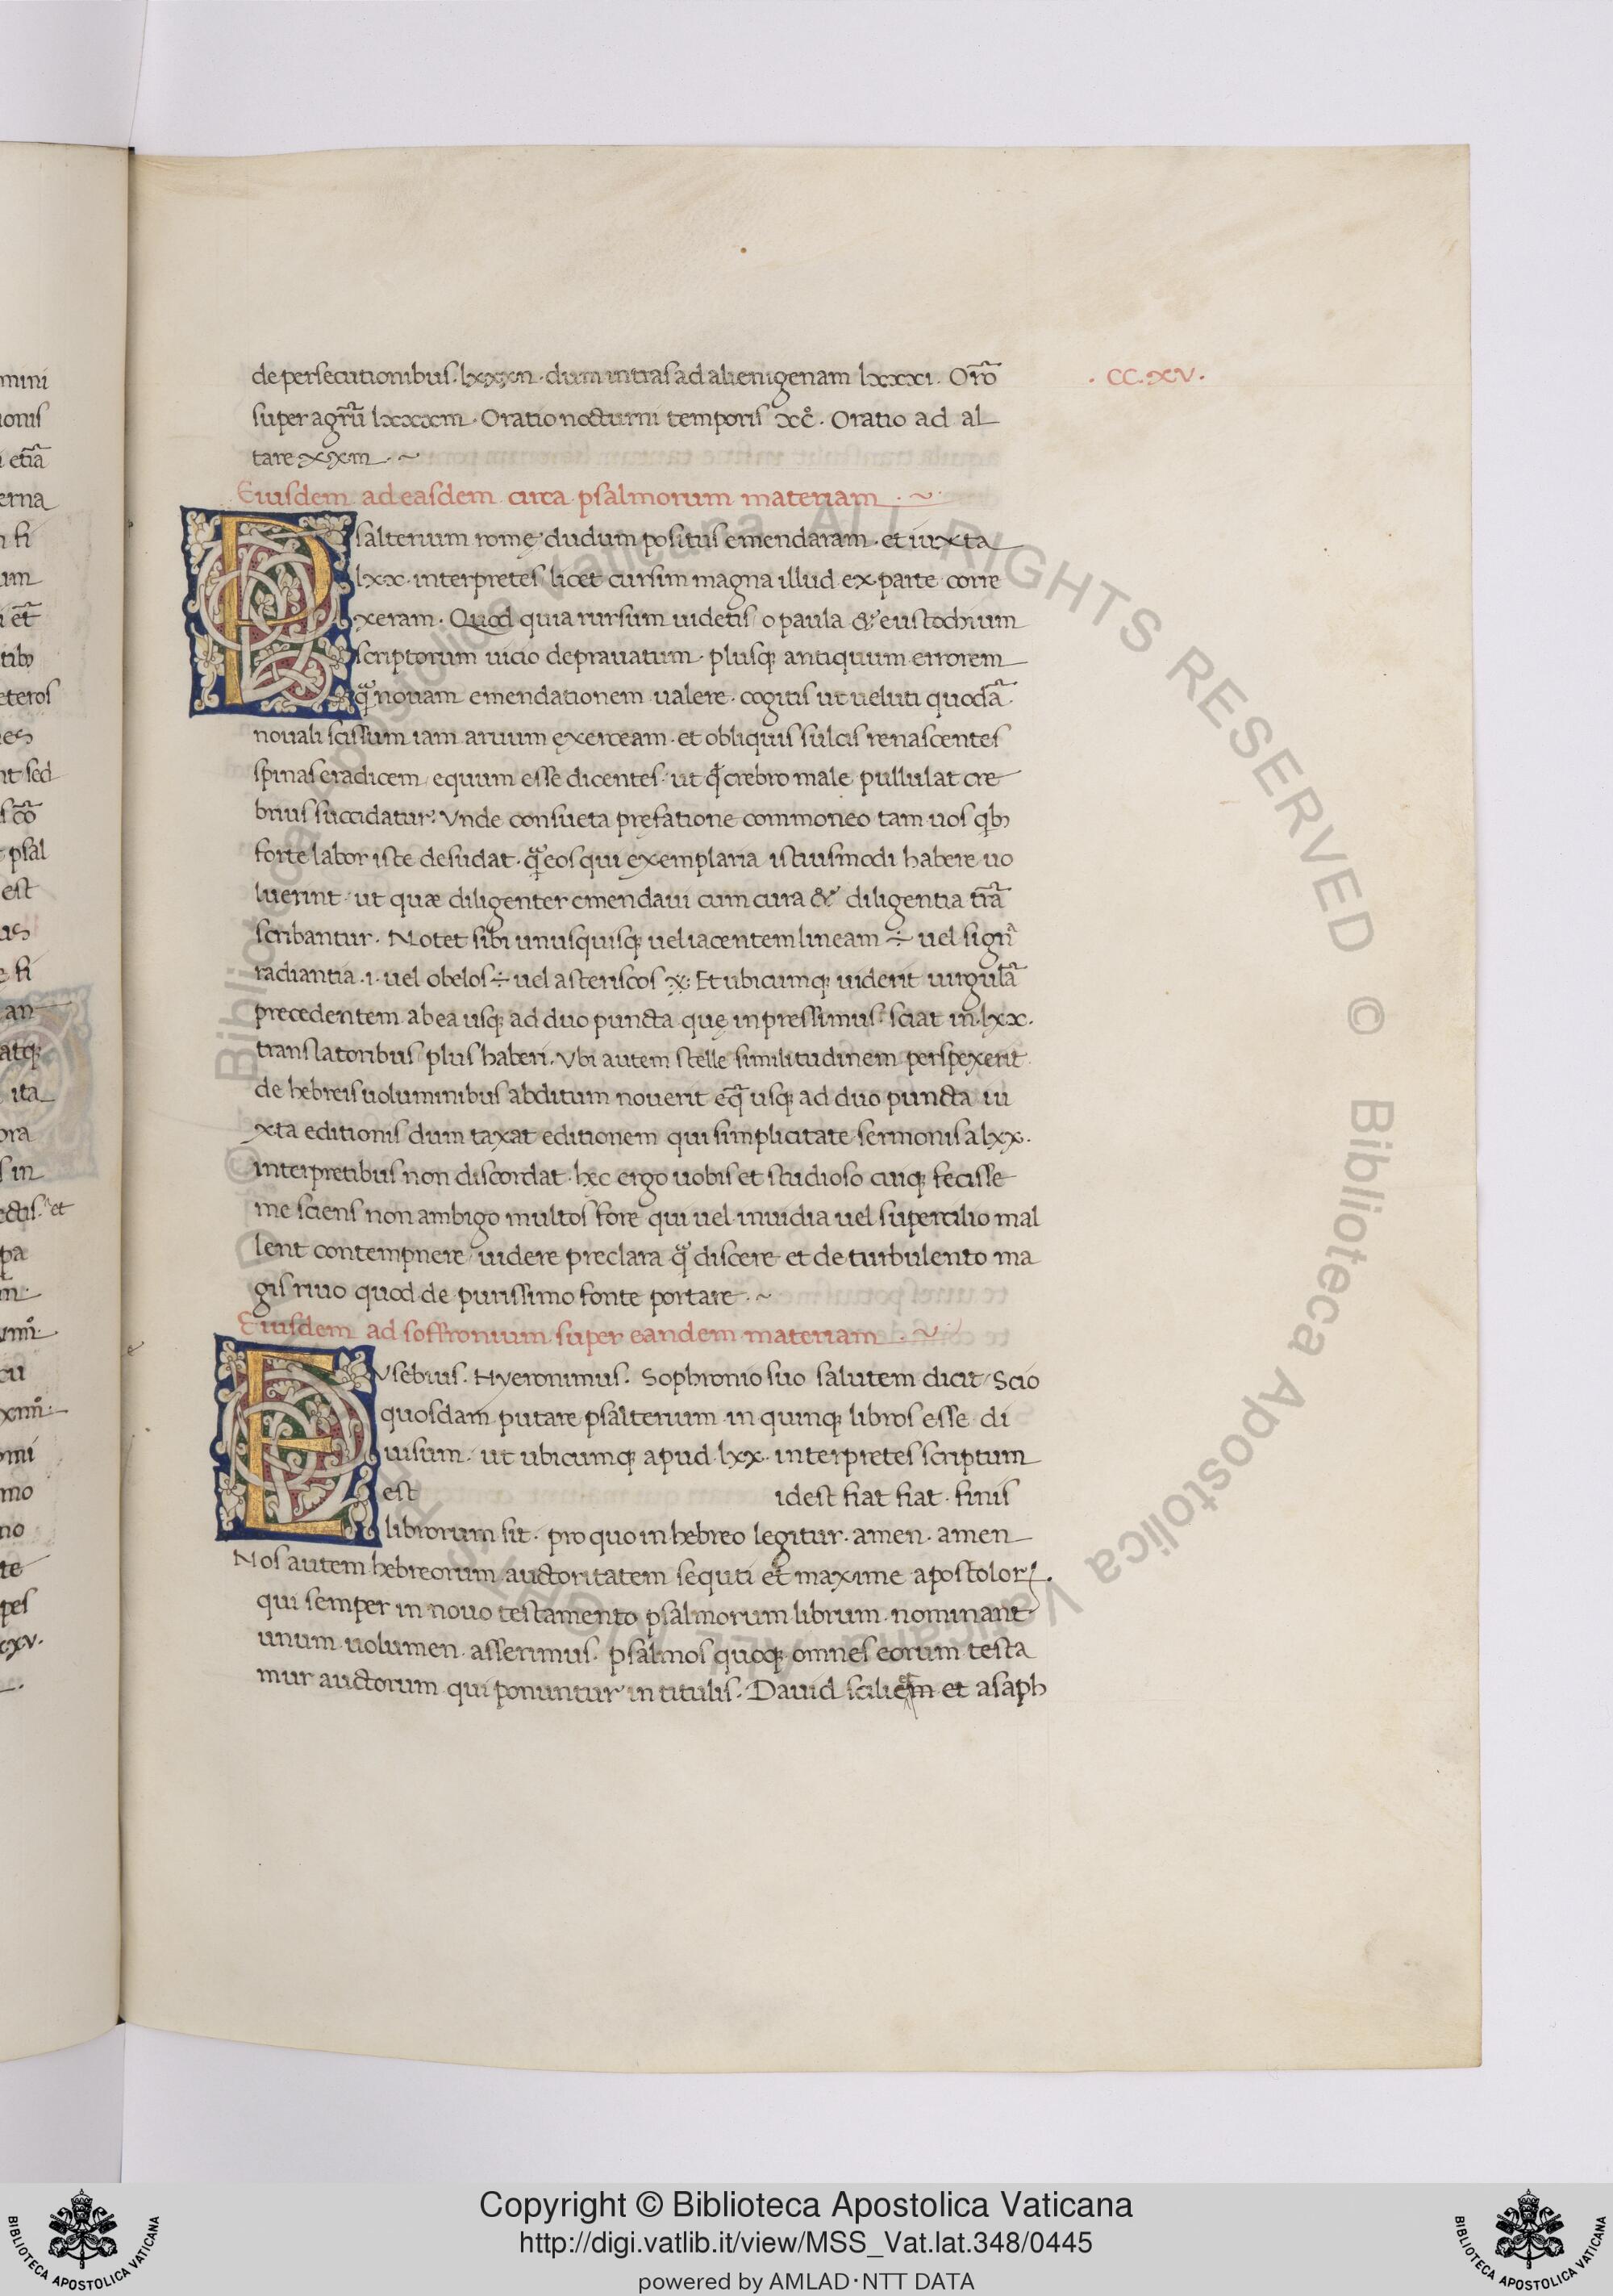 mini
ionis
etiā
erna
eteros
nt sed
psal
est
us
an
atqꝫ
ita
ora
s in
pa
mo
no
te
pes
.CC.XV.
de persecutionibus. lxxxii. dum intras ad alienigenam lxxxi. Orō
super agrū lxxxiii. Oratio nocturni temporis xc. Oratio ad al
tare xxiii. ~
Eiusdem ad easdem circa psalmorum materiam . ~
Psalterium romę dudum positus emendaram. et iuxta
lxx. interpretes licet cursim magna illud ex parte corre
xeram. Quod quia rursum uidetis o paula & eustochium
scriptorum uicio deprauatum. plusqꝫ antiquum errorem
qᷓ nouam emendationem ualere. cogitis ut ueluti quodā
nouali scissum iam aruum exerceam. et obliquis sulcis renascentes
spinas eradicem equum esse dicentes. ut qd̄ crebro male pullulat cre
brius succidatur. Vnde consueta prefatione commoneo tam uos qbꝫ
forte labor iste desudat. qᷓ eos qui exemplaria istiusmodi habere uo
luerint. ut quæ diligenter emendaui cum cura & diligentia trā
scribantur. Notet sibi unusquisqꝫ uel iacentem lineam ÷ uel signͣ
radiantia .i. uel obelos ÷ uel asteriscos ※ Et ubicumqꝫ uiderit uirgulā
precedentem. ab ea usqꝫ ad duo puncta quę inpressimus. sciat in lxx.
translatoribus plus haberi. Vbi autem stelle similitudinem perspexerit
de hebreis uoluminibus abditum nouerit eqͣ usqꝫ ad duo puncta iu
xta editionis dum taxat editionem qui simplicitate sermonis a lxx.
interpretibus non discordat. hęc ergo uobis et studioso cuiqꝫ fecisse
me sciens non ambigo multos fore qui uel inuidia uel supercilio mal
lent contempnere uidere preclara qᷓ discere et de turbulento ma
gis riuo quod de purissimo fonte portare. ~
Eiusdem ad soffronium super eandem materiam . ~
Eusebius. Hyeronimus. Sophronio suo salutem dicit. Scio
quosdam putare psalterium in quinqꝫ libros esse di
uisum. ut ubicumqꝫ apud lxx. interpretes scriptum
est idest fiat fiat. finis
librorum sit. pro quo in hebreo legitur. amen. amen
Nos autem hebreorum auctoritatem sequti et maxime apostolorꝝ.
qui semper in nouo testamento psalmorum librum nominant
unum uolumen. asserimus. psalmos quoqꝫ omnes eorum testa
mur auctorum qui ponuntur in titulis. Dauid et asaph
© Biblioteca Apostolica Vaticana ALL RIGHTS RESERVED © Biblioteca Apostolica Vaticana ALL RIGHTS RESERVED
Copyright © Biblioteca Apostolica Vaticana
http://digi.vatlib.it/view/MSS_Vat.lat.348/0445
powered by AMLAD・NTT DATA
BIBLIOTECA APOSTOLICA VATICANA
BIBLIOTECA APOSTOLICA VATICANA